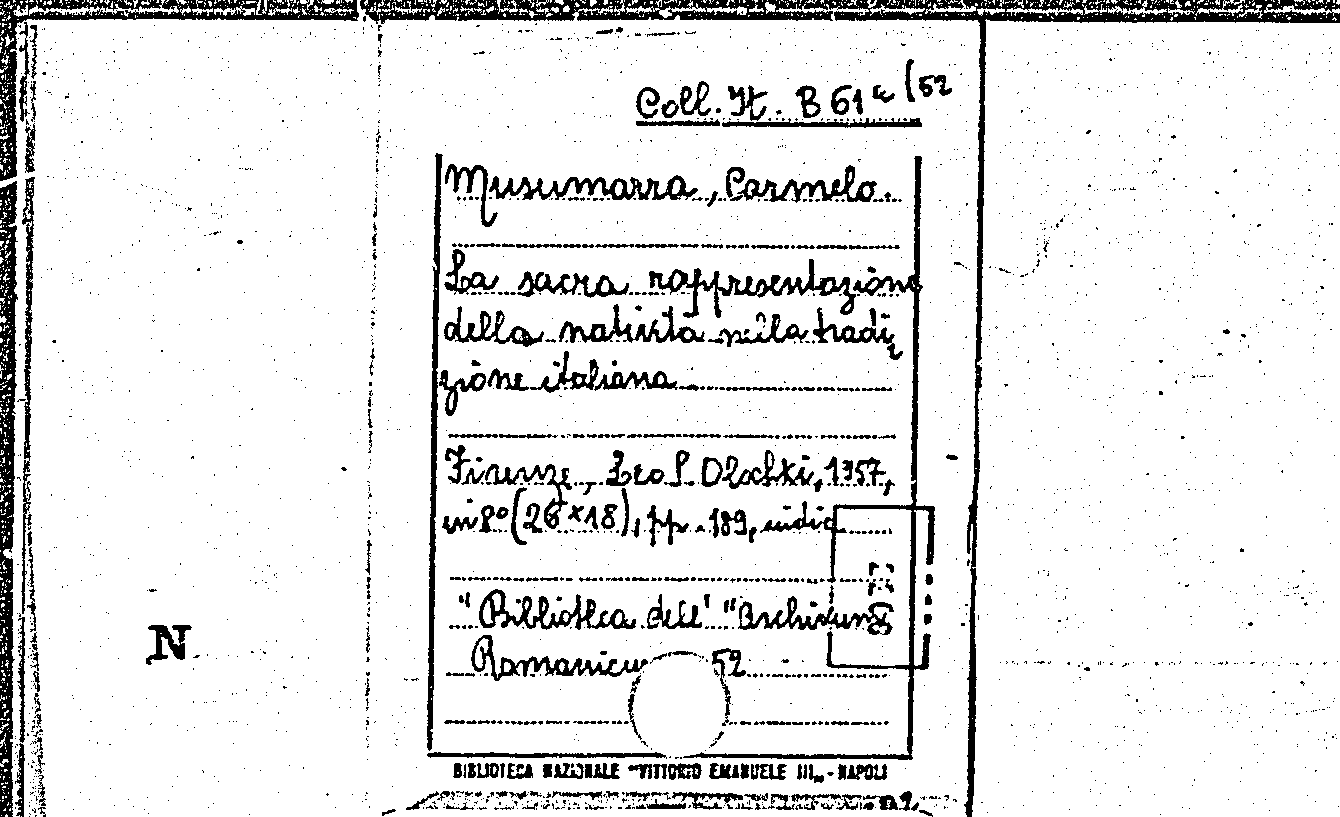 Coll. It. B 61 /52
Musumarra, Carmelo.
La sacra rappresentazione
della natività nella tradi
zione italiana
Firenze, Leo S. Olschki, 1957,
in 8º (26×18), pp. 189, indic
"Biblioteca dell' "Archivum
Romanicu 52
N
BIBLIOTECA NAZIONALE "VITTORIO EMANUELE III„ - NAPOLI